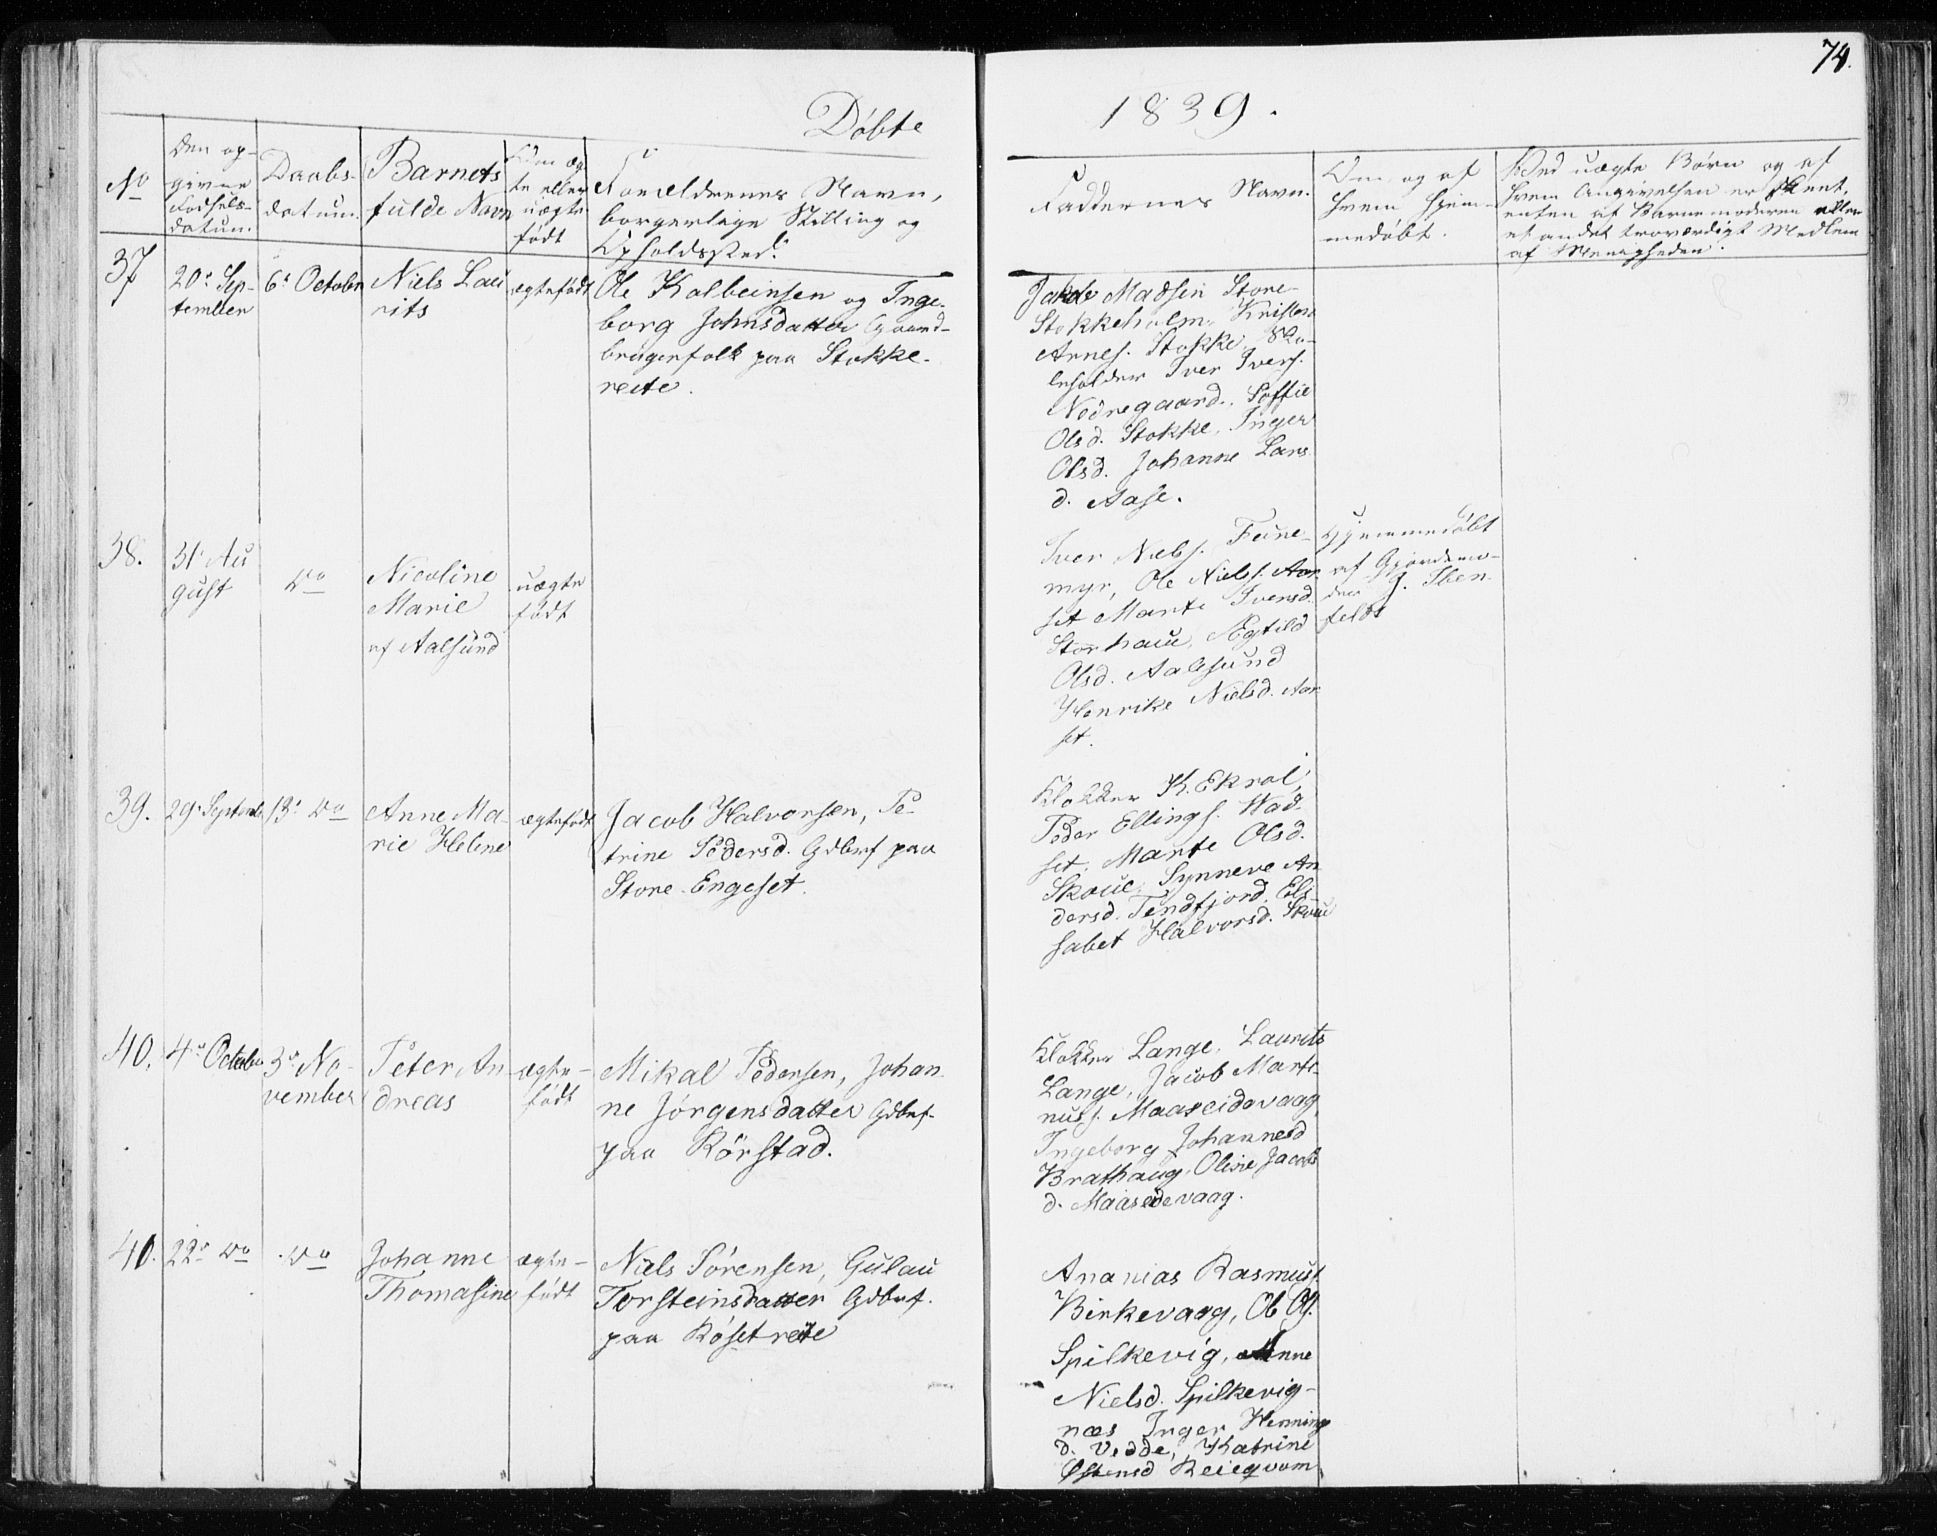 74.
Döbte
1839.
No
Den op-
givne
Fødsels-
datum.
Daabs-
datum.
Barnets
fulde Navn
Om æg
te eller
uægte
født
Forældrenes Navn,
borgerlige Stilling og
Opholdssted.
Faddernes Navn.
Om og af
hvem hjem-
medøbt.
Ved uægte Børn og af
hvem Angivelsen er skeet,
enten af Barnemoderen eller
et andet troværdigt Medlem
af Menigheden.
37
20de Sep-
tember
6te October
Niels Lau
rits
ægtefödt
Ole Kolbeinsen og Inge-
borg Johnsdatter Gaard-
brugerfolk paa Stokke-
reite.
Jakob Madsen Store-
Stokkeholm, Kristen
Arnes. Stokke, Sko-
leholder Iver Ivers.
Nedregaard. Soffie
Olsd. Stokke, Inger
Olsd. Johanne Lars
d. Aase.
38.
31' Au
gust
do
Nicoline
Marie
af Aalsund
uægte
født
Iver Niels.
myr, Ole Niels. Aar
set Marte Iversd.
Storhaue,
Olsd. Aalesund
Henrike Nielsd. Aar
set.
Hjemmedöbt
af Gjordemo-
der J. Iben
feldt
39.
29' Septembr
13' do
Anne Ma-
rie Helene
ægtefödt
Jacob Halvorsen, Pe-
trine Pedersd. Gdbrf paa
Store-Engeset.
Klokker K. Ekrol,
Peder Ellings. Wad-
set, Marte Olsd.
Skoue, Synneve An
dersd. Tendfjord, Eli
sabet Halvorsd. Skoue
40.
4de October
3de No-
vember
Peter An-
dreas
ægte-
født
Mikal Pedersen, Johan-
ne Jörgensdatter Gdbrf.
paa Rörstad.
Klokker Lange. Laurits
Lange, Jacob Marti
nuss. Maaseidevaag
Ingeborg Johannesd
Brathaug, Oline Jacobs
d. Maaseidevaag.
41.
22de do
do
Johanne
Thomasine
ægte-
født
Niels Sörensen, Gulau
Torsteinsdatter Gdbrf.
paa Röset reite
Ananias Rasmus.
Birkevaag, Ob Ols.
Spilkevig, Anne
Nielsd. Spilkevig-
næs Inger Hennings
d. Vedde, Katrine
Østensd Reiegvam